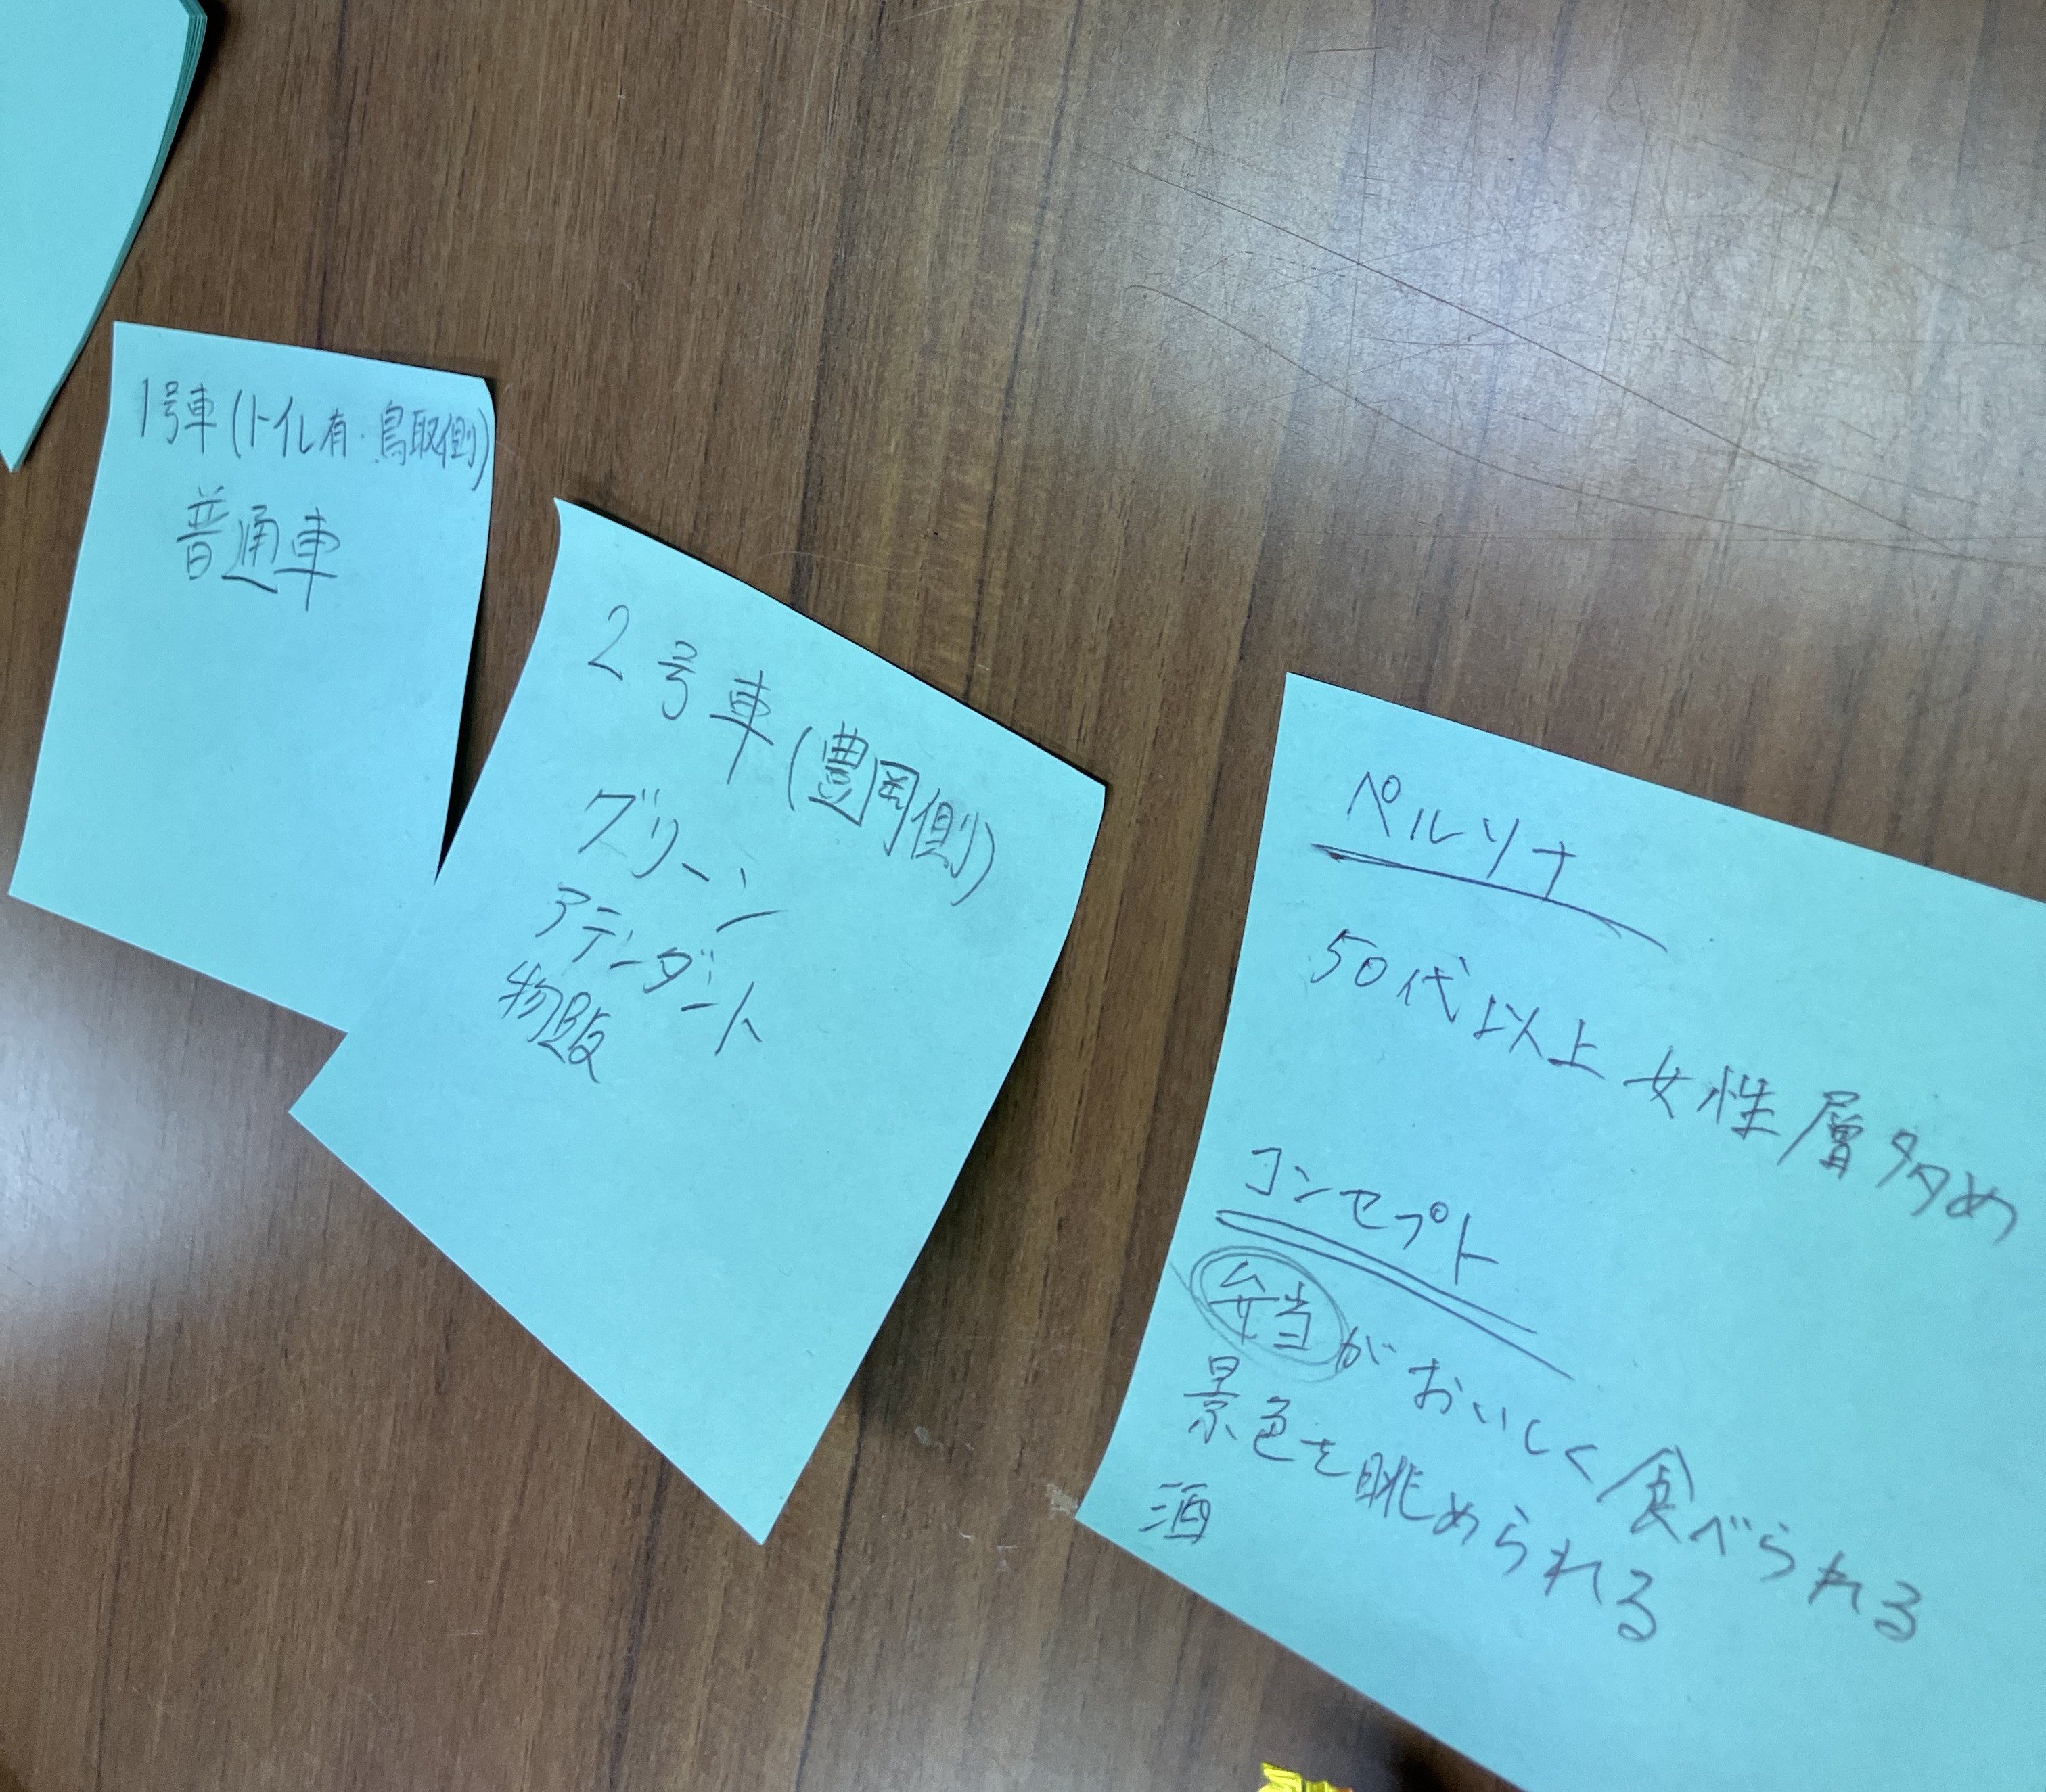 1号車(トイレ有・鳥取側)
普通車
2号車(豊岡側)
グリーン
アテンダント
物販
ペルソナ
50代以上女性層多め
コンセプト
弁当がおいしく食べられる
景色を眺められる
酒